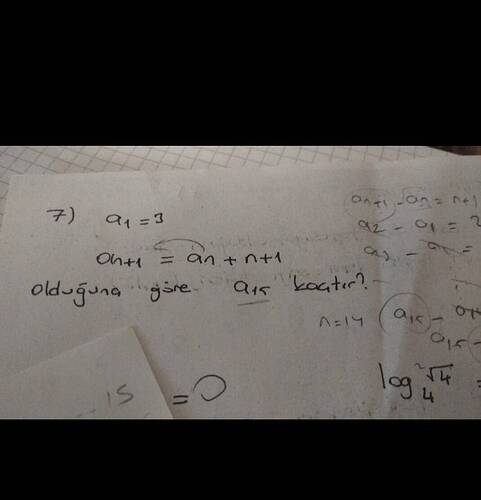 7) a1 = 3
an+1 = an + n+1
olduğuna göre a15 kaçtır?
an+1 - an = n+1
a2 - a1 = 2
n=14
a15 -
a15 -
log4 ²√4 =
15
= 0